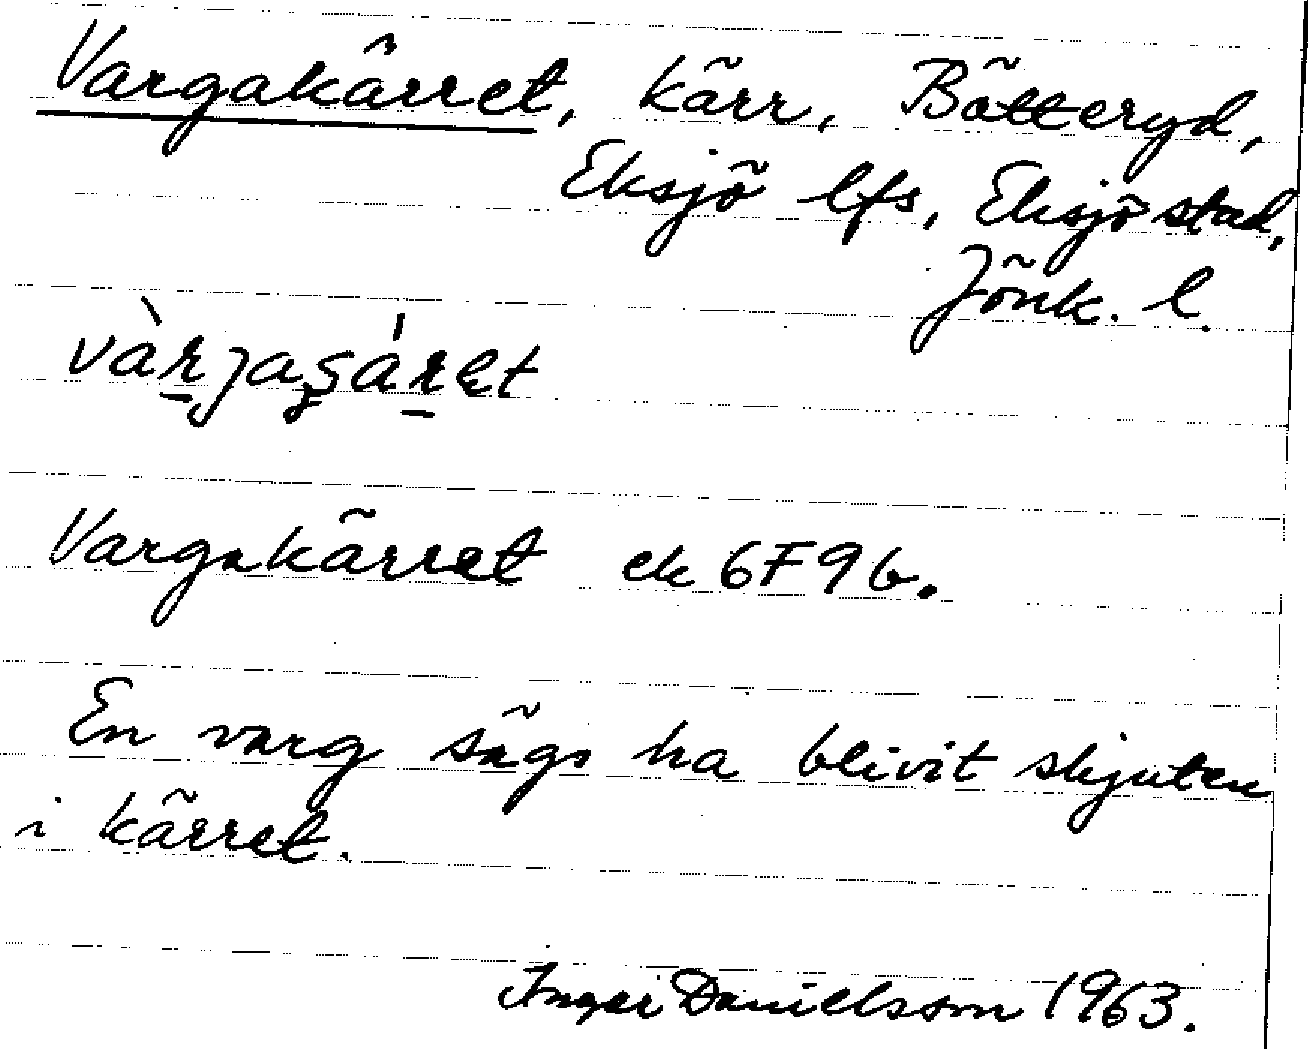 Vargakärret, kärr, Bätteryd,
Eksjö lfs, Eksjö stad,
Jönk. l.
Vargakärret ek 6F9b.
En varg sägs ha blivit skjuten
i kärret.
Inger Danielsson 1963.